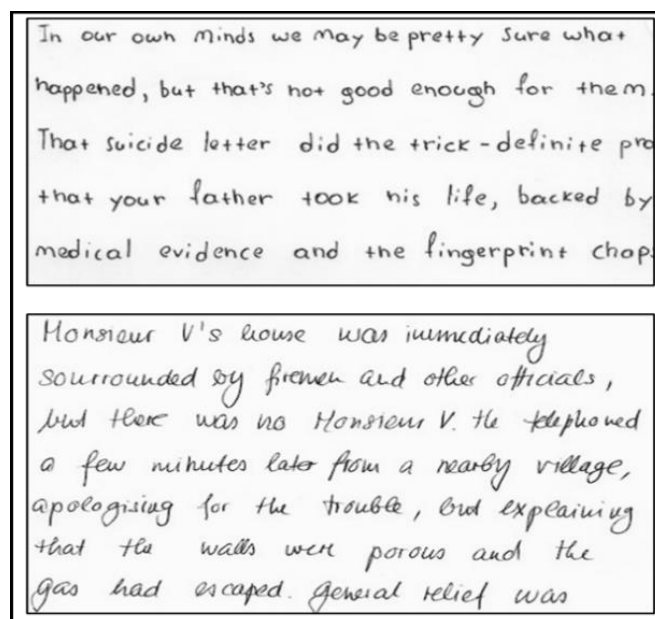 In our own minds we may be pretty sure what
happened, but that's not good enough for them.
That suicide letter did the trick - definite pro
that your father took his life, backed by
medical evidence and the fingerprint chap
Monsieur V's house was immediately
sourrounded by firemen and other officials,
but there was no Monsieur V. He telephoned
a few minutes later from a nearby village,
apologising for the trouble, but explaining
that the walls were porous and the
gas had escaped. General relief was